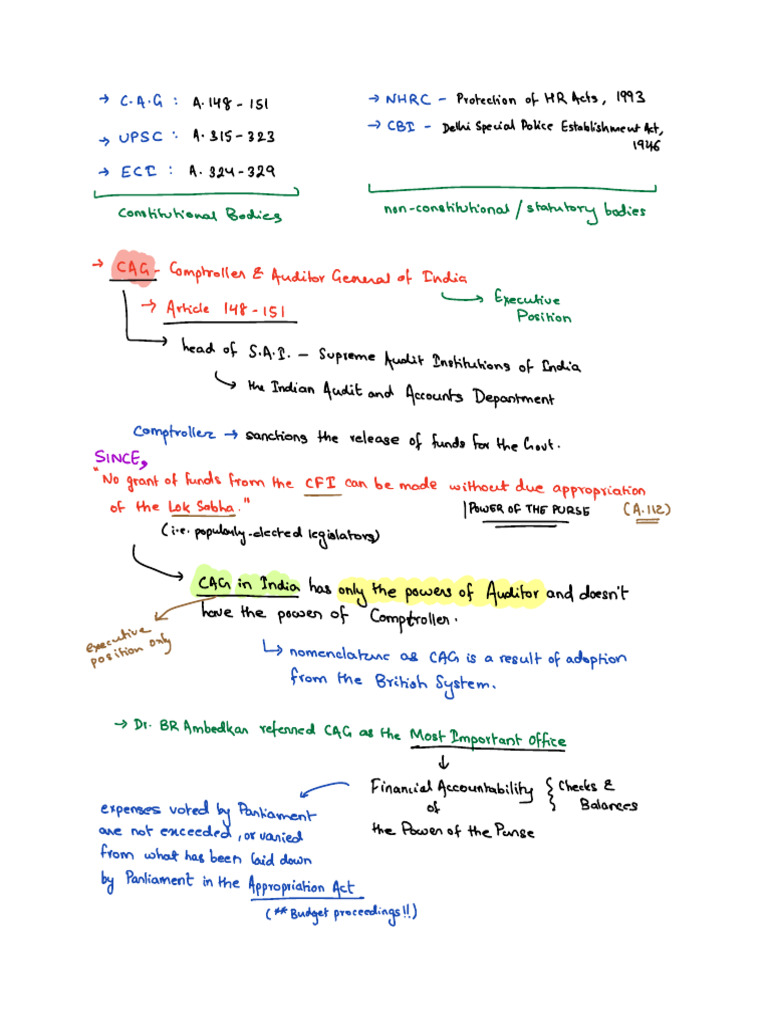 → C.A.G : A.148 - 151
→ UPSC : A. 315 - 323
→ ECI : A. 324 - 329
Constitutional Bodies
→ NHRC - Protection of HR Acts, 1993
→ CBI - Delhi Special Police Establishment Act,
1946
non-constitutional / statutory bodies
→ CAG - Comptroller & Auditor General of India
→ Executive
Position
→ Article 148 - 151
→ head of S.A.I. - Supreme Audit Institutions of India
↳ the Indian Audit and Accounts Department
Comptroller → sanctions the release of funds for the Govt.
SINCE,
"No grant of funds from the CFI can be made without due appropriation
of the Lok Sabha."
|POWER OF THE PURSE (A.112)
(i.e. popularly-elected legislators)
→ CAG in India has only the powers of Auditor and doesn't
have the power of Comptroller.
executive
position only
↳ nomenclature as CAG is a result of adoption
from the British System.
→ Dr. BR Ambedkar referred CAG as the Most Important Office
↓
Financial Accountability { Checks &
of } Balances
the Power of the Purse
expenses voted by Parliament
are not exceeded, or varied
from what has been laid down
by Parliament in the Appropriation Act
(** Budget proceedings!!)